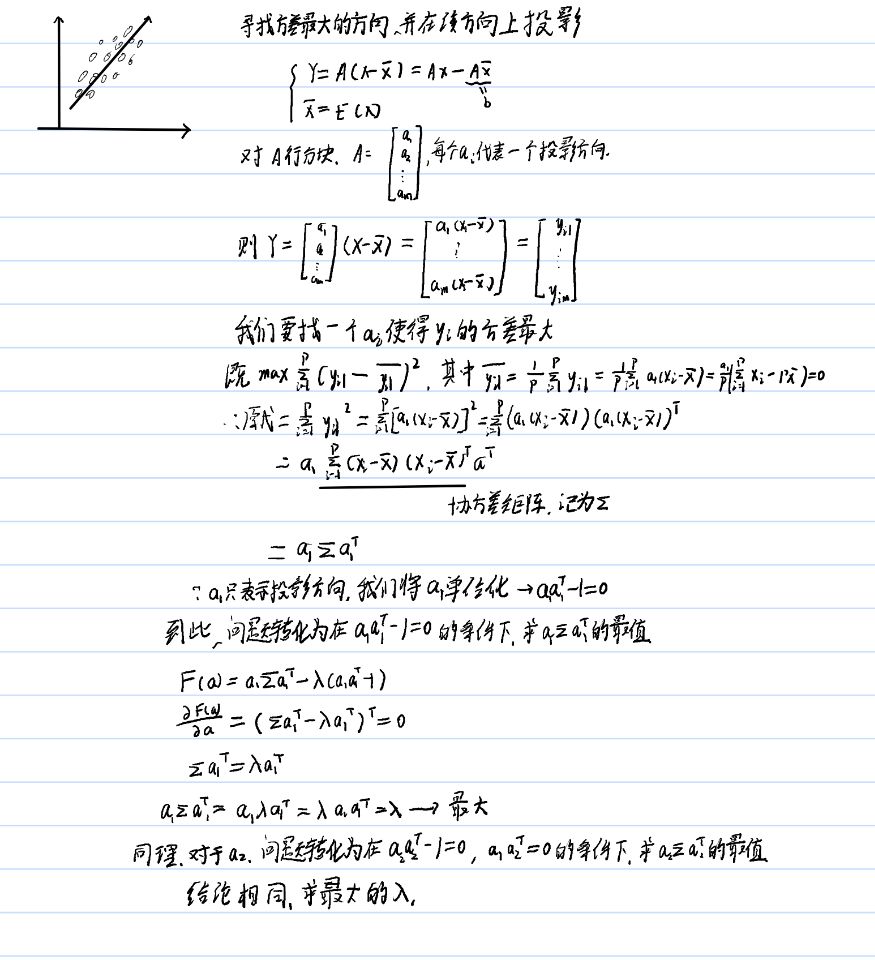 寻找方差最大的方向,并在该方向上投影
{ Y = A(x-x̄) = Ax - Ax̄
b
x̄ = E(x)
对A行分块. A = [a₁ a₂ ⋮ aₘ], 每个aᵢ代表一个投影方向.
则 Y = [a₁ a₂ ⋮ aₘ](x-x̄) = [a₁(xᵢ-x̄) ⋮ aₘ(xᵢ-x̄)] = [yᵢ₁ ⋮ yᵢₘ]
我们要找一个aᵢ使得yᵢ的方差最大
既 max Σᵢ₌₁ᴾ (yᵢ₁ - ȳᵢ₁)², 其中 ȳᵢ₁ = 1/P Σᵢ₌₁ᴾ yᵢ₁ = 1/P Σᵢ₌₁ᴾ a₁(xᵢ-x̄) = a₁/P (Σᵢ₌₁ᴾ xᵢ - Px̄) = 0
∴原式 = Σᵢ₌₁ᴾ yᵢ₁² = Σᵢ₌₁ᴾ [a₁(xᵢ-x̄)]² = Σᵢ₌₁ᴾ (a₁(xᵢ-x̄))(a₁(xᵢ-x̄))ᵀ
= a₁ Σᵢ₌₁ᴾ (xᵢ-x̄)(xᵢ-x̄)ᵀ aᵀ
协方差矩阵, 记为Σ
= a₁Σa₁ᵀ
∵a₁只表示投影方向, 我们将a₁单位化 → a₁a₁ᵀ-1=0
到此, 问题转化为在 a₁a₁ᵀ-1=0 的条件下, 求a₁Σa₁ᵀ的最值
F(a) = a₁Σa₁ᵀ - λ(a₁a₁ᵀ-1)
∂F(a)/∂a = (Σa₁ᵀ - λa₁ᵀ)ᵀ = 0
Σa₁ᵀ = λa₁ᵀ
a₁Σa₁ᵀ = a₁λa₁ᵀ = λa₁a₁ᵀ = λ → 最大
同理. 对于a₂, 问题转化为在 a₂a₂ᵀ-1=0, a₁a₂ᵀ=0的条件下, 求a₂Σa₂ᵀ的最值
结论相同, 求最大的λ.